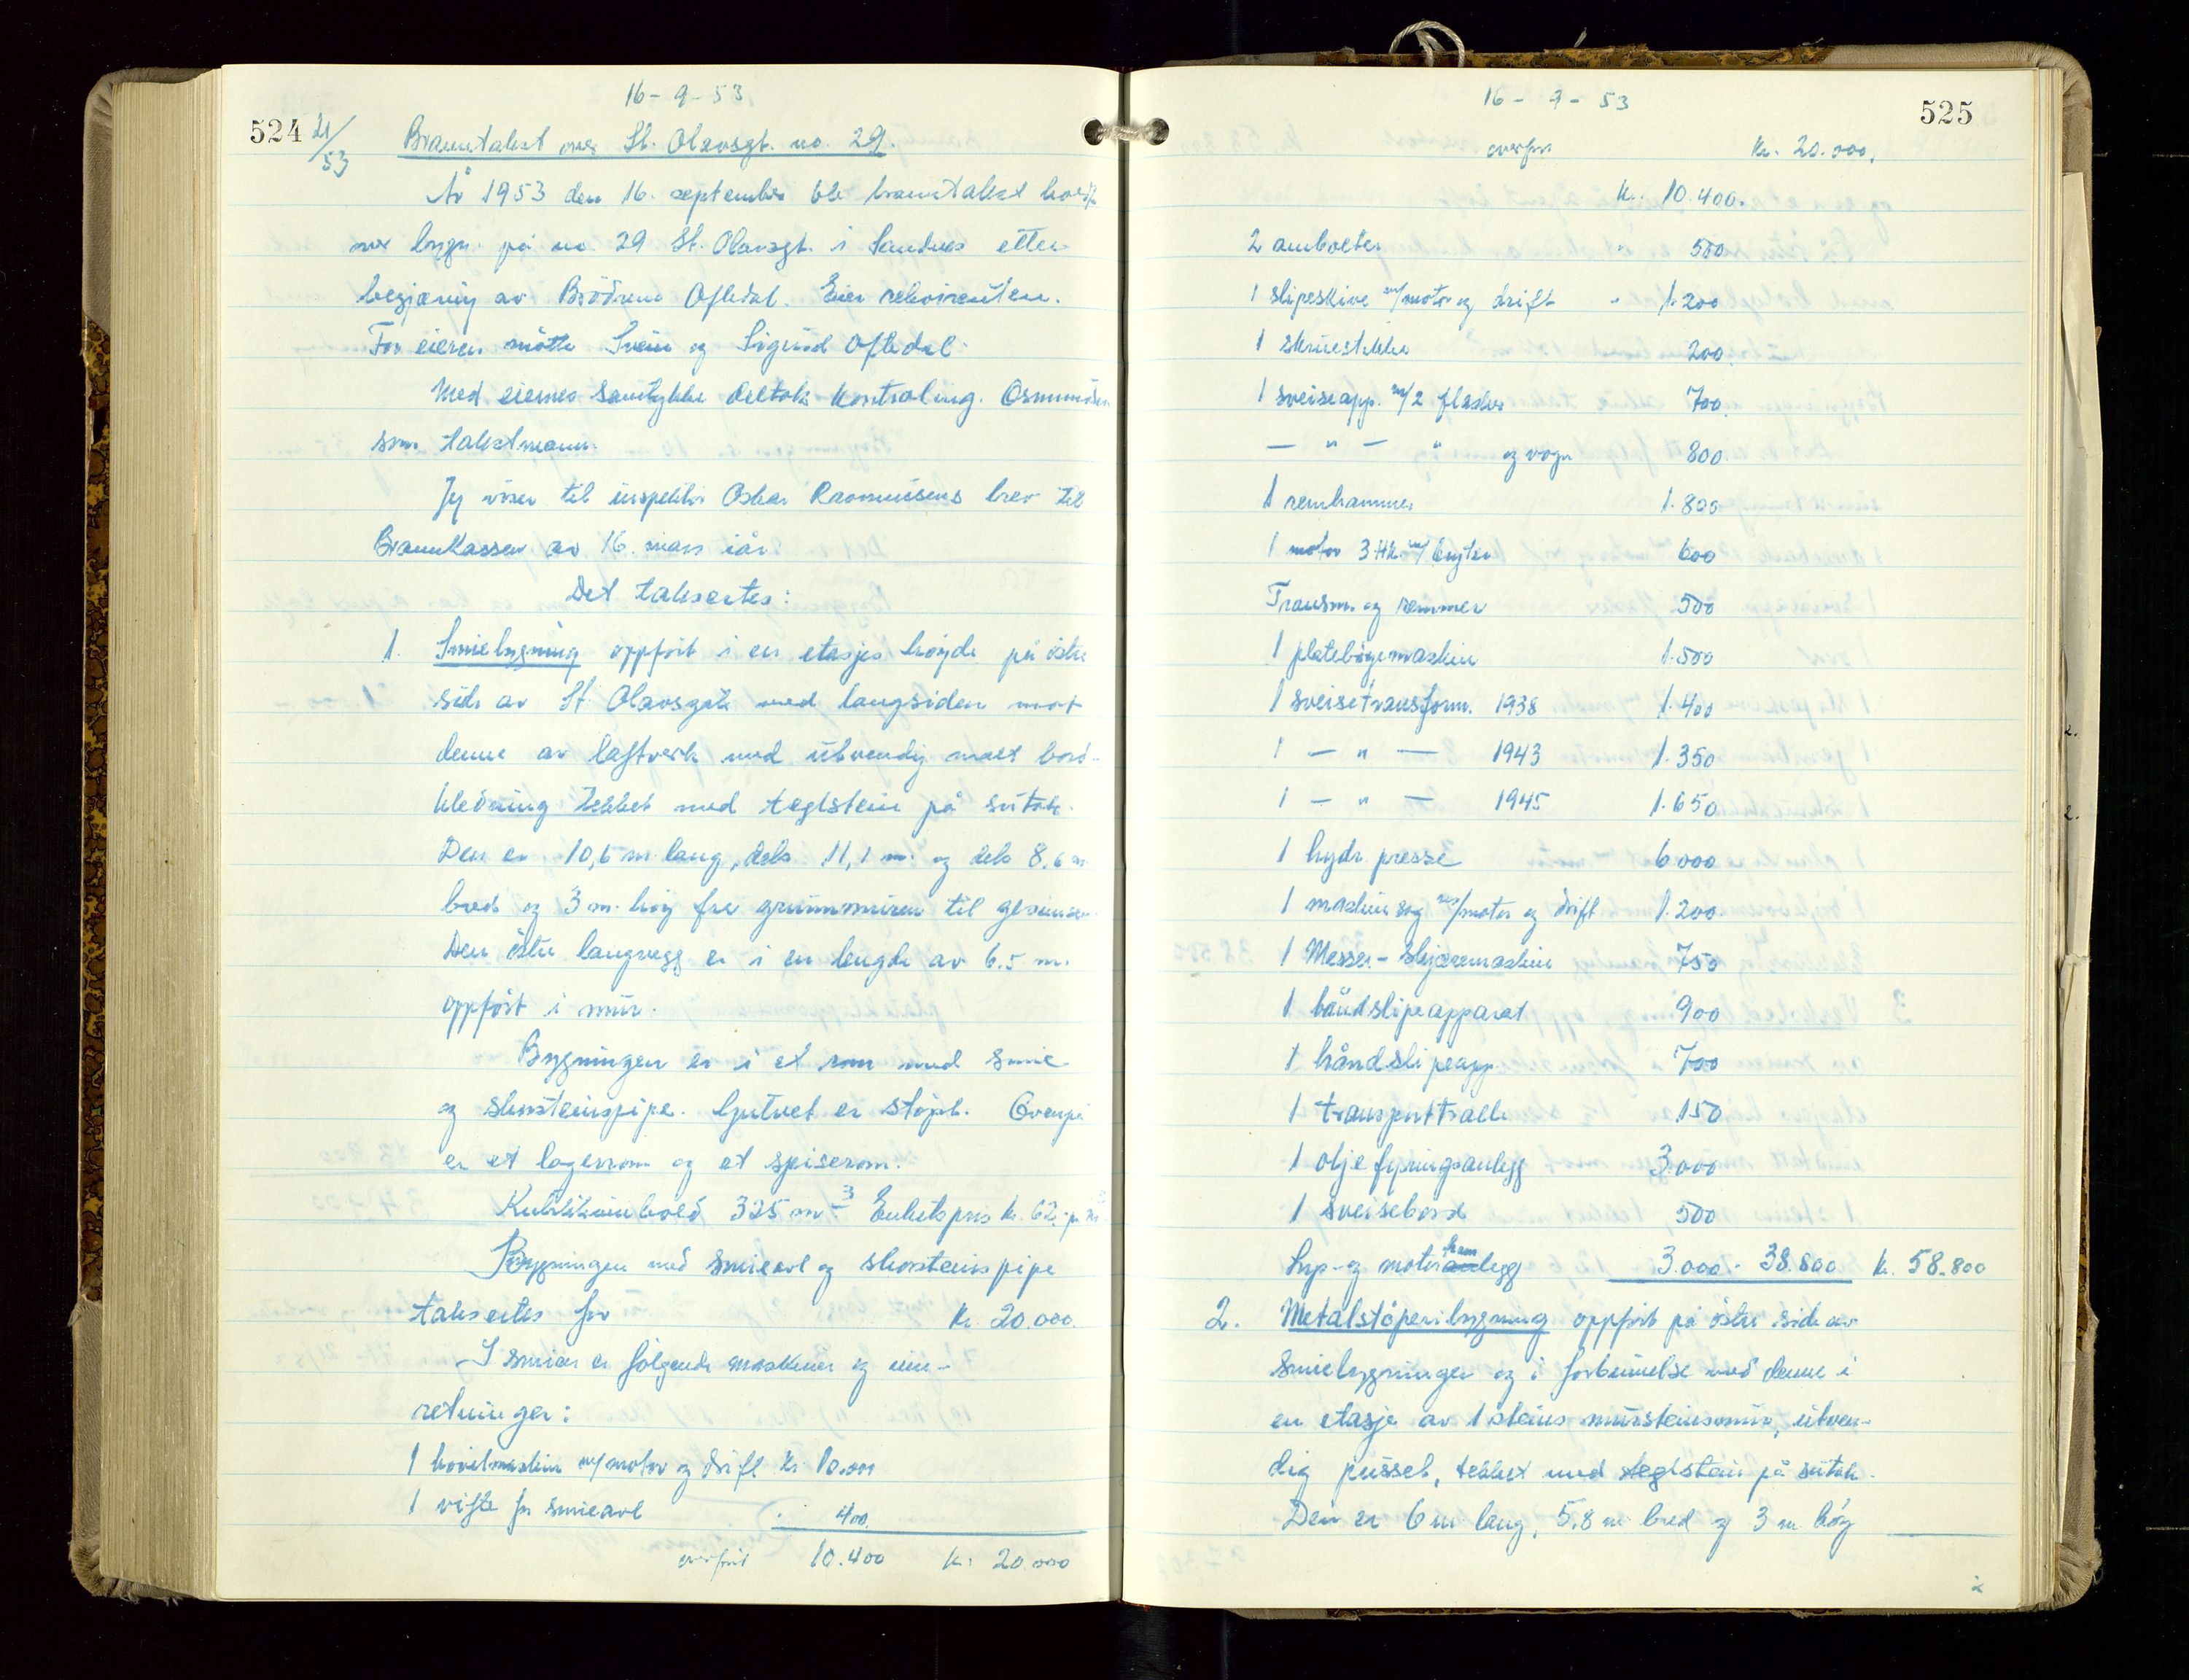 16-9-53
524 21/53
Branntakst over St. Olavsgt. no. 29.
År 1953 den 16. september ble branntakst holdt
over bygn. på no. 29 St. Olavsgt. i Sandnes etter
begjæring av Brödrene Oftedal. Eier rekvirenten.
For eieren mötte Svein og Sigurd Oftedal.
Med eiernes samtykke deltok kontroling. Osmundsen
som takstmann.
Jeg viser til inspektör Oskar Rasmussens brev til
Brannkassen av 16. mars iår.
Det takseres:
1. Smiebygning oppfört i en etasjes höyde på östre
side av St. Olavsgate med langsiden mot
denne av laftverk med utvendig malt bord-
kledning tekket med teglstein på sutak.
Den er 10,6 m lang, dels 11,1 m. og dels 8,6 m
bred og 3 m. höy fra grunnmuren til gesimsen.
Den östre langvegg er i en lengde av 6.5 m.
oppfört i mur.
Bygningen er i et rom med smie
og skorsteinspipe. Gulvet er stöpt. Ovenpå
er et lagerrom og et spiserom.
Kubikkinhold 325 m³ Enhetspris kr. 62,- pr m³
Bygningen med smieavl og skorsteinspipe
takseres for kr. 20.000.
I smien er fölgende maskiner og inn-
retninger:
1 hövelmaskin m/motor og drift kr. 10.000
1 vifte for smieavl " 400.
overfört 10.400 kr. 20.000
16-9-53
525
overfört kr. 20.000,
kr. 10.400.
2 ambolter " 500
1 slipeskive m/motor og drift " 1.200
1 skruestikke 200.
1 sveiseapp. m/2 flasker 700.
— " — " og vogn 800.
1 remhammer 1.800
1 motor 3 Hk m/bryter 600
Transm. og remmer 500
1 platebögemaskin 1.500
1 sveisetransform. 1938 1.400
1 — " — 1943 1.350
1 — " — 1945 1.650
1 hydr. presse 6.000
1 maskinsag m/motor og drift 1.200
1 Messer-skjæremaskin 750
1 båndslipeapparat 900
1 håndslipeapp. 700
1 transporttralle 150
1 oljefyringsanlegg 3.000
1 sveisebord 500
Lys- og motorkraftanlegg 3.000- 38.800 kr. 58.800
2. Metalstöperibygning oppfört på östre side av
smiebygningen og i forbinnelse med denne i
en etasje av 1 steins mursteinsmur, utven-
dig pusset, tekket med teglstein på sutak.
Den er 6 m lang, 5,8 m bred og 3 m höy